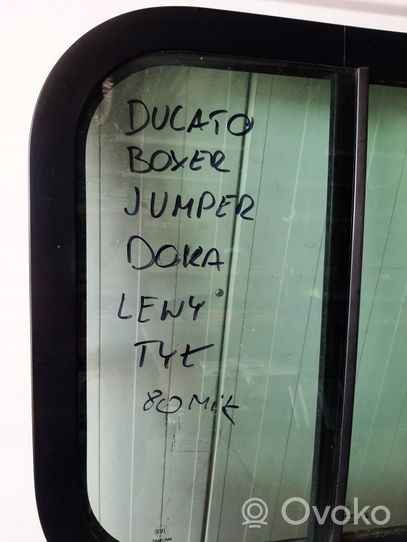 DUCATO
BOXER
JUMPER
DOKA
LEWY
TYŁ
80 MIK
Ovoko